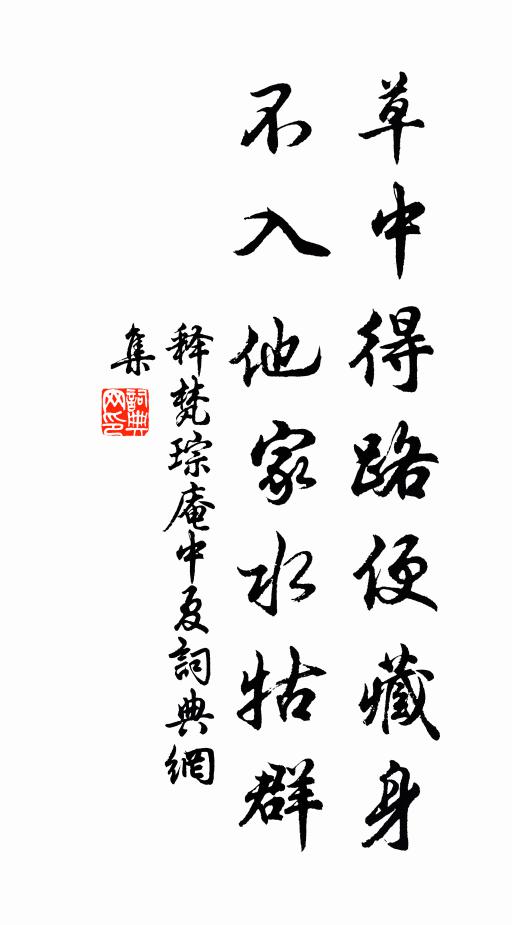 草中得路便藏身
不入他家水牯群
释梵琮庵中夏詞典網
集
詞典
网印